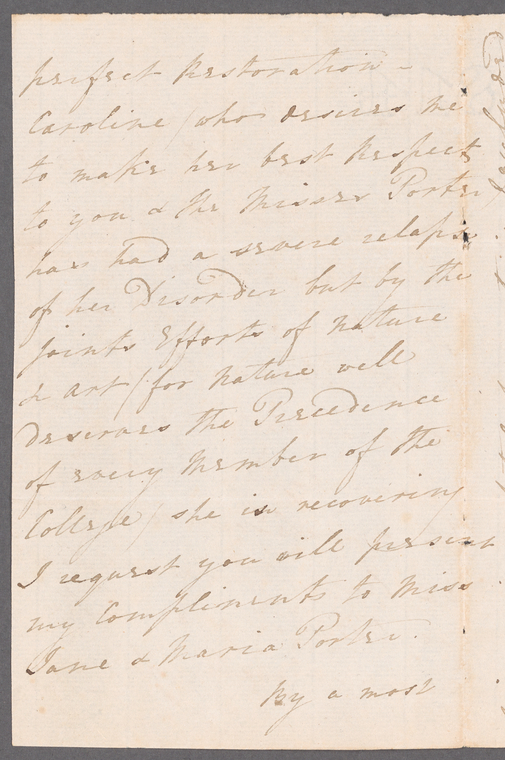 perfect Restoration -
Caroline (who desires me
to make her best Respects
to you & the Misses Porter)
has had a severe relapse
of her Disorder but by the
joints Efforts of Nature
& Art (for Nature well
Deserves the Precedence
of every Member of the
College) she is recovering
I request you will present
my Compliments to Miss
Jane & Maria Porter.
By a most